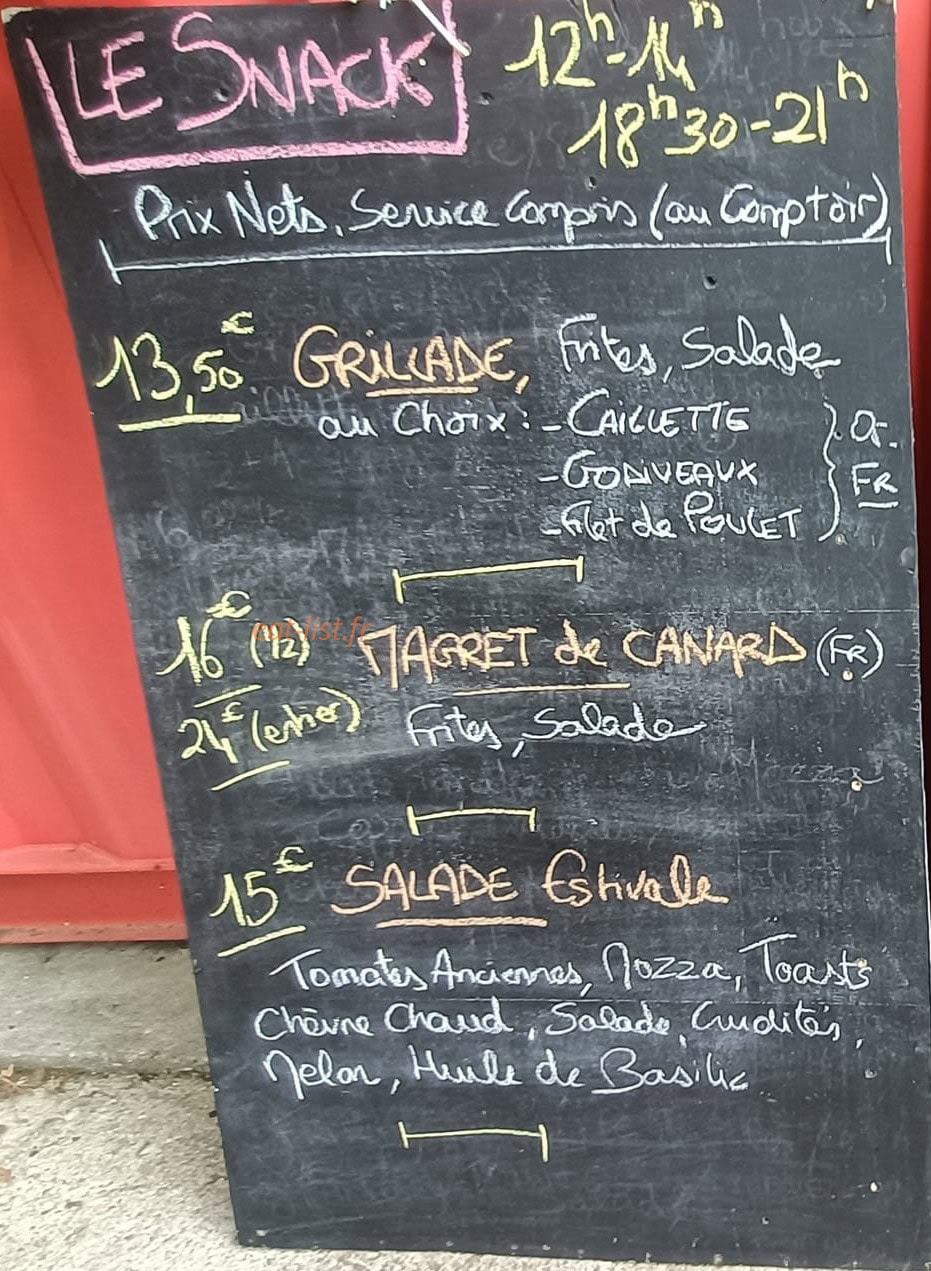 LE SNACK
12h-14h
18h30-21h
Prix Nets, Service Compris (au Comptoir)
13,50€ GRILLADE, Frites, Salade
au Choix : - CAILLETTE
- GODIVEAUX
- Filet de POULET
Or. FR
16€ (1/2) MAGRET de CANARD (FR)
24€ (entier) Frites, Salade
eat-list.fr
15€ SALADE Estivale
Tomates Anciennes, Mozza, Toasts
Chèvre Chaud, Salade, Crudités,
Melon, Huile de Basilic